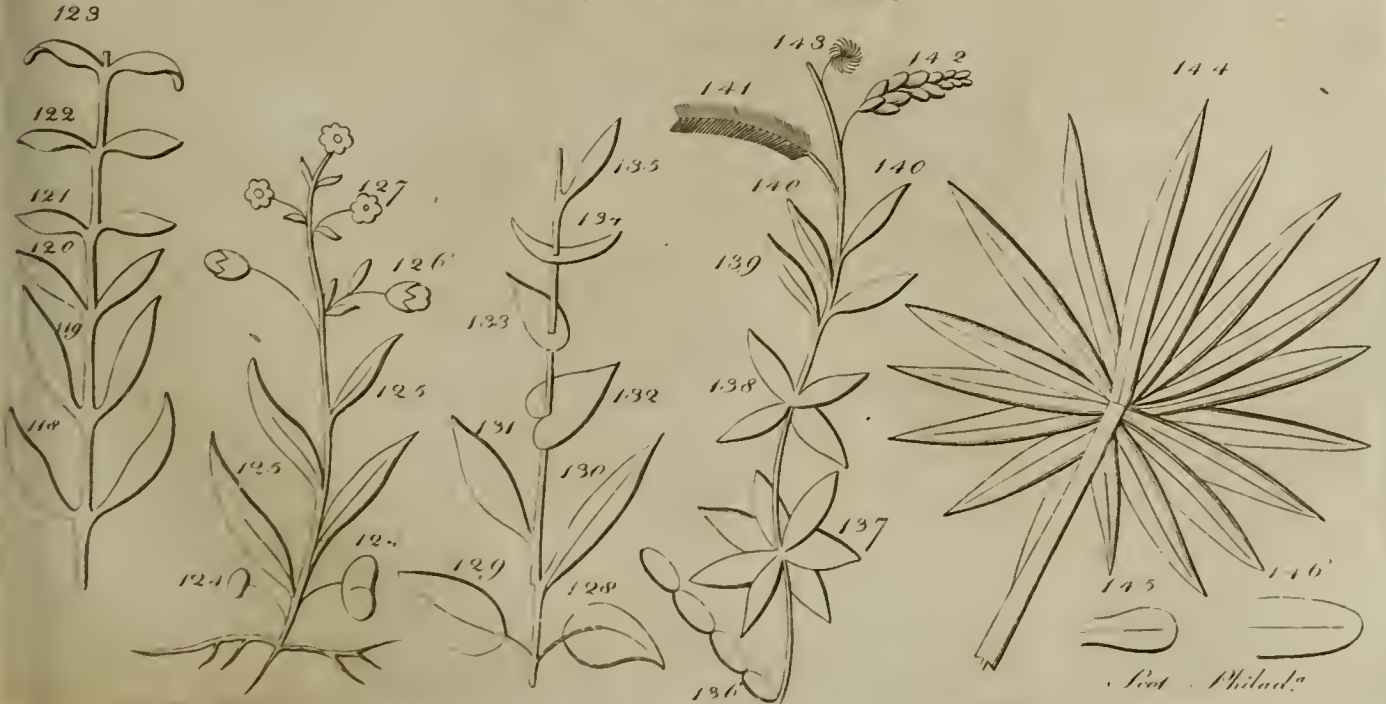 123
122
121
120
119
118
127
126
125
125
124
124
135
134
133
132
131
130
129
128
143
142
141
140
140
139
138
137
136
144
145
146
Scot Philad.a